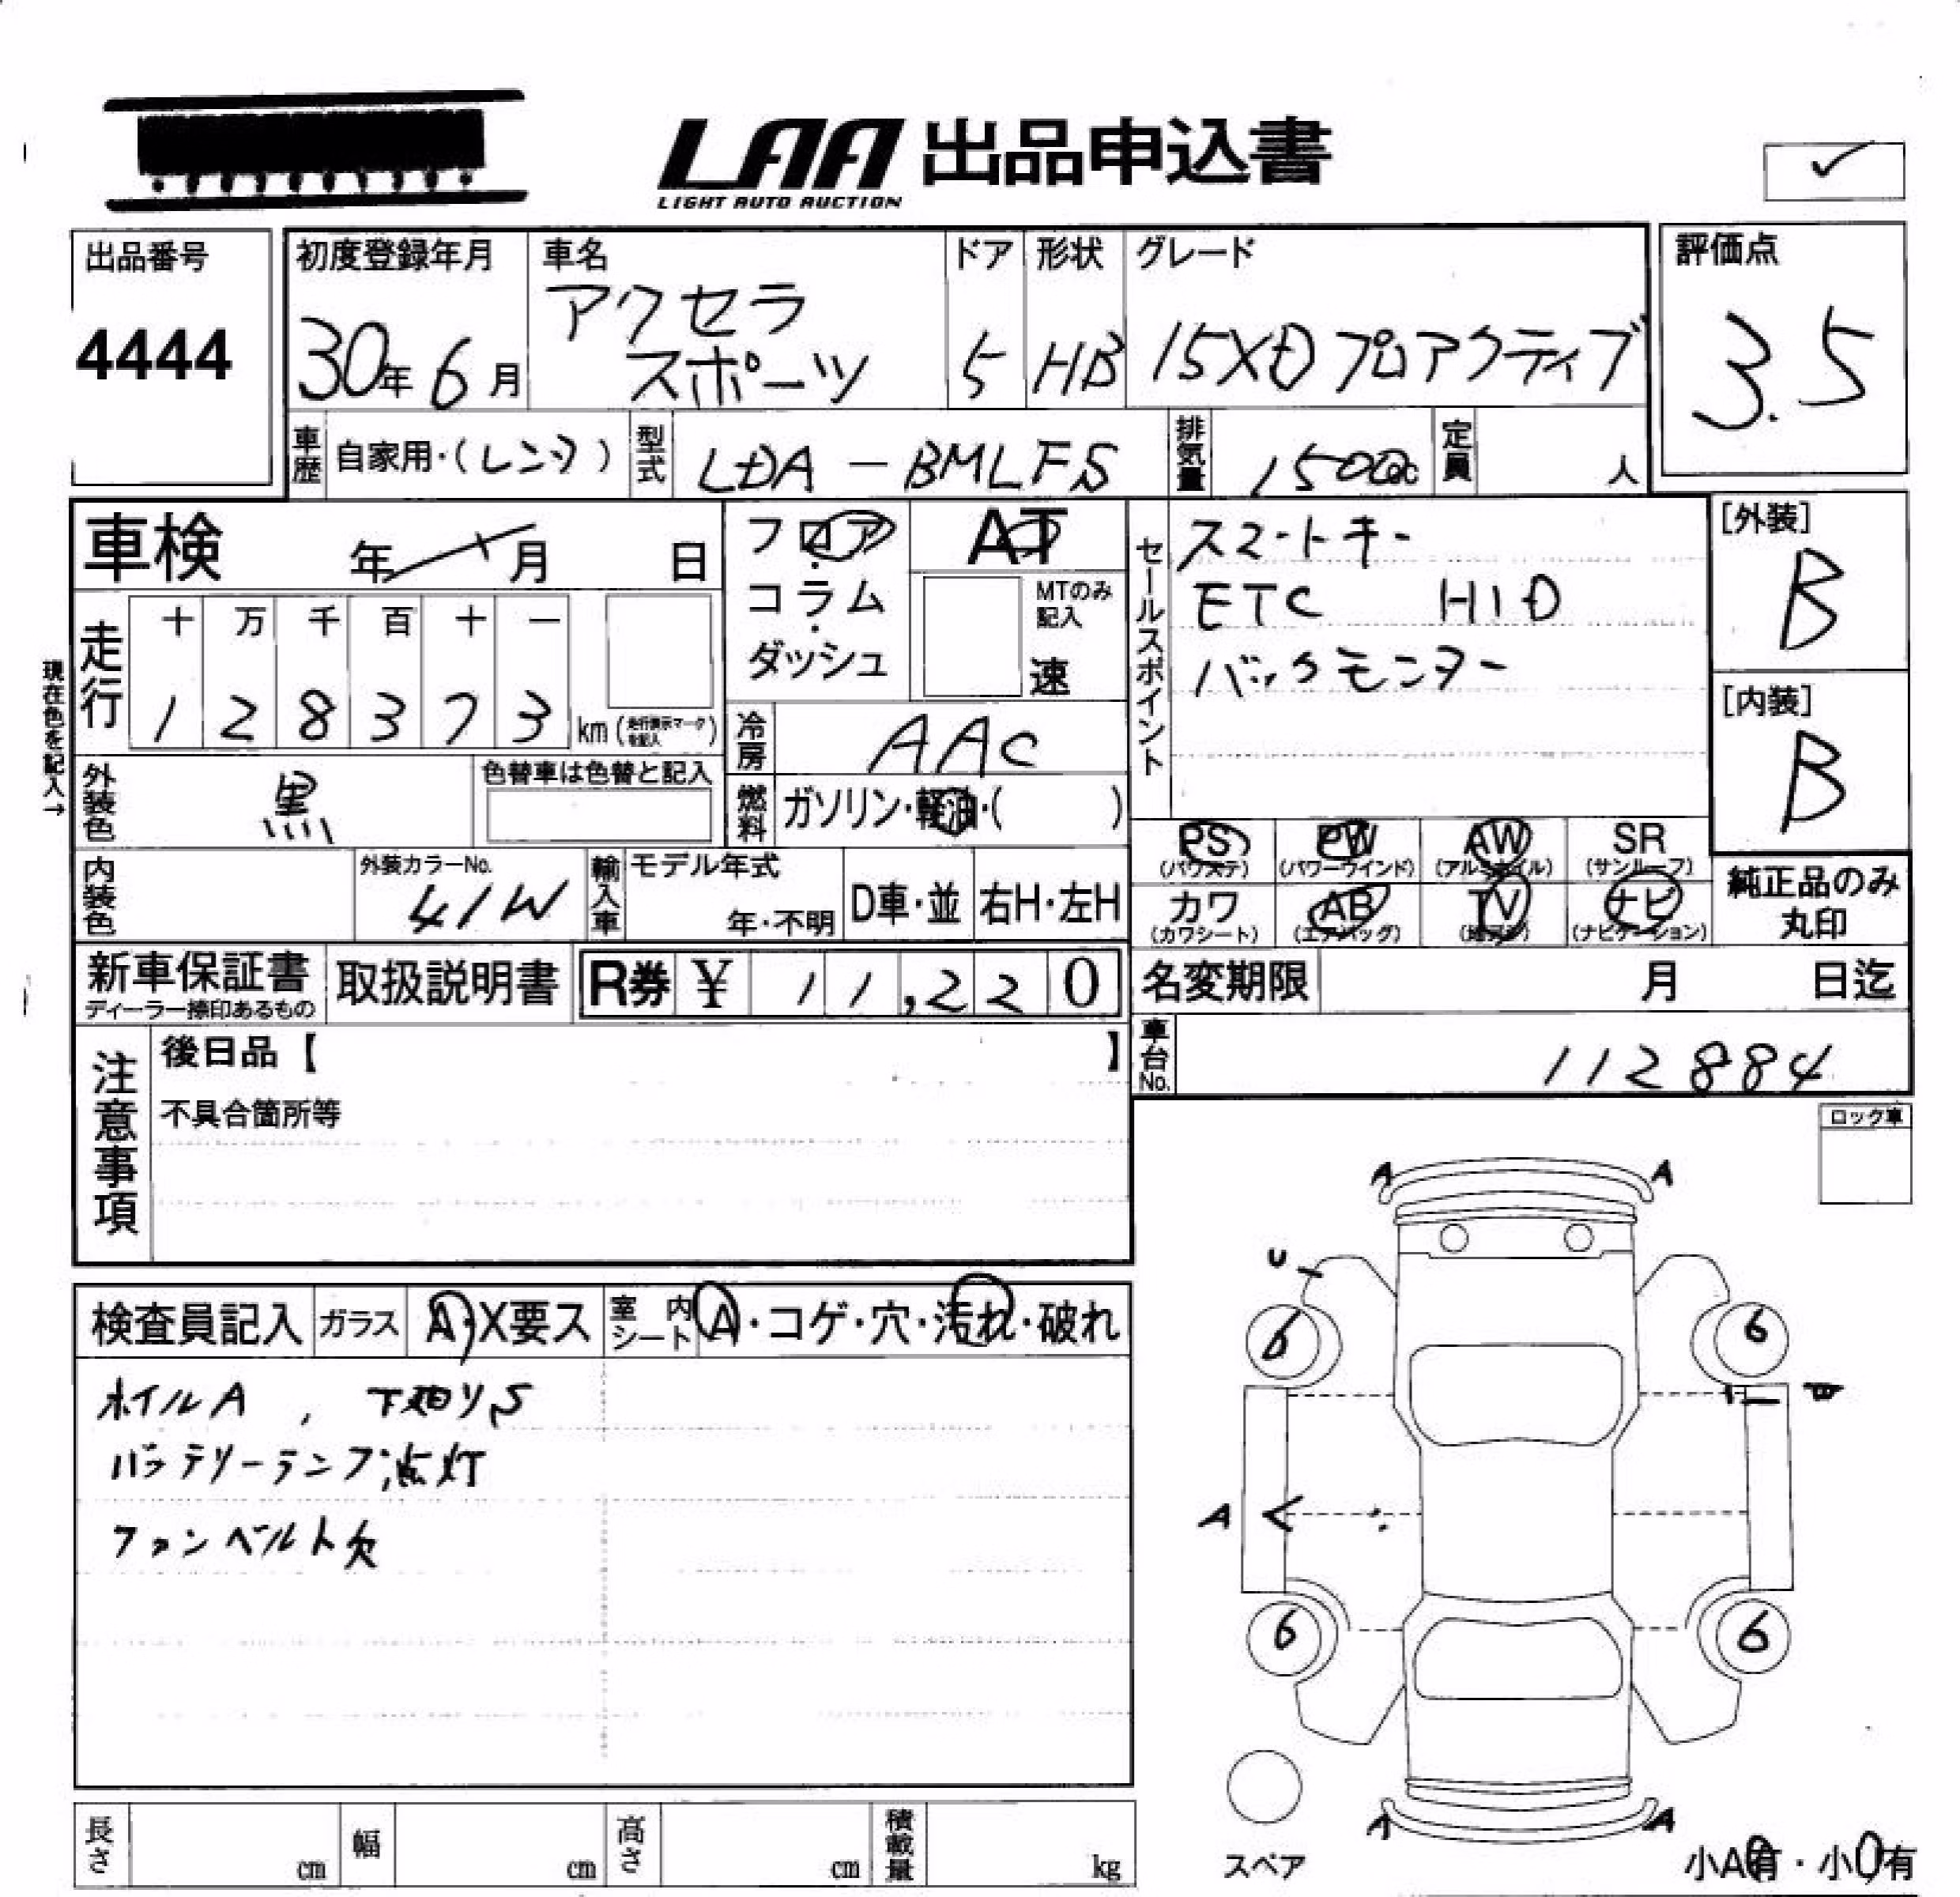 LAA 出品申込書
LIGHT AUTO AUCTION
✓
出品番号
4444
初度登録年月
30年 6月
車名
アクセラ
スポーツ
ドア
5
形状
HB
グレード
15XD プロアクティブ
評価点
3.5
車歴 自家用・(レンタ)
型式 LDA-BMLFS
排気量 1500cc
定員 人
車検 年 月 日
走行 十 万 千 百 十 一
1 2 8 3 7 3 km (走行表示マークを記入)
現在色を記入→
外装色 黒
色替車は色替と記入
フロア
・
コラム
・
ダッシュ
AT
MTのみ
記入
速
冷房 AAC
燃料 ガソリン・軽油・( )
セールスポイント
スマートキー
ETC HID
バックモニター
[外装]
B
[内装]
B
PS PW AW SR
(パワステ) (パワーウインド) (アルミホイル) (サンルーフ)
カワ AB TV ナビ
(カワシート) (エアバッグ) (ナビゲーション)
純正品のみ
丸印
内装色
外装カラーNo.
41W
輸入車 モデル年式
年・不明
D車・並 右H・左H
新車保証書
ディーラー捺印あるもの
取扱説明書
R券 ¥ 11,220
名変期限 月 日迄
車台No. 112884
注意事項
後日品【 】
不具合箇所等
ロック車
検査員記入 ガラス A・X要ス 室内シート A・コゲ・穴・汚れ・破れ
ホイルA , 下廻りS
バッテリーランプ点灯
ファンベルト欠
A A
U
6 6
A
6 6
A A
スペア
小A有・小U有
長さ cm 幅 cm 高さ cm 積載量 kg